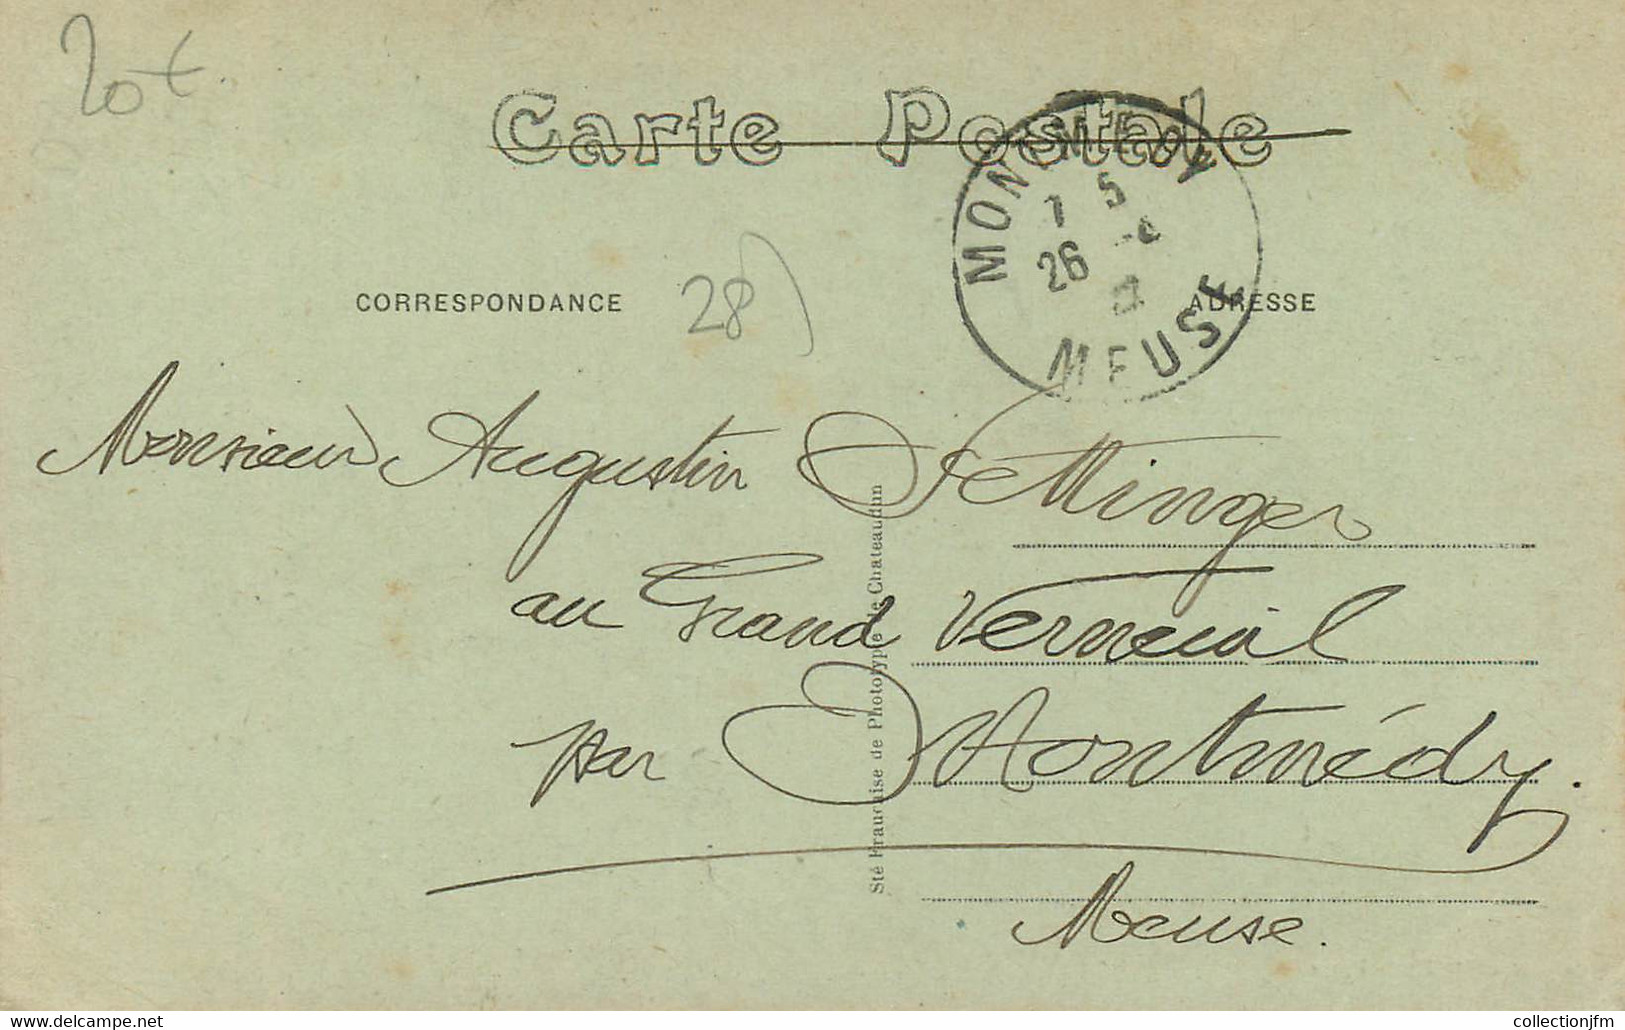 20€
Carte Postale
MONTMEDY
7 5
26
MEUSE
CORRESPONDANCE
28)
ADRESSE
Monsieur Augustin Jettinger
au Grand Verneuil
par Montmédy.
Meuse.
Sté Française de Phototypie de Chateaudun
www.delcampe.net
collectionjfm